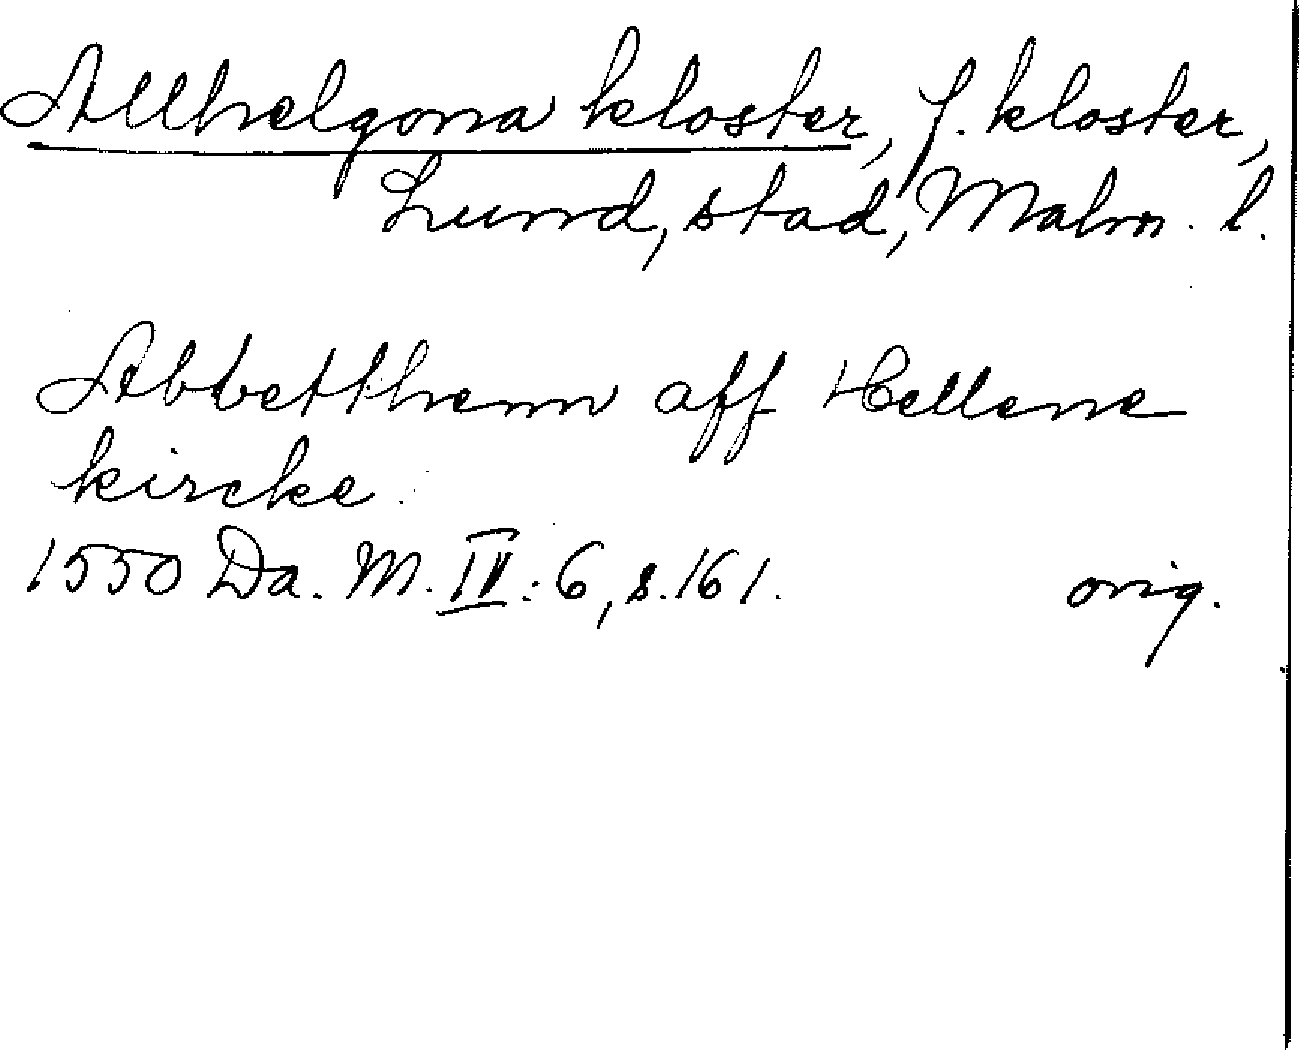 Allhelgona kloster, f. kloster,
Lund, stad, Malm. l.
Abbetthenn aff Hellene
kircke.
1550 Da. M. IV: 6, s. 161. orig.